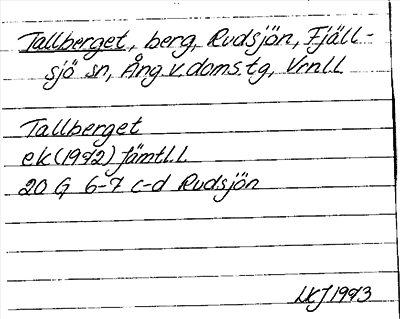 Tallberget, berg, Rudsjön, Fjäll-
sjö sn, Ång.v.doms.tg, Vrnl.l
Tallberget
ek(1972) Jämtl.l.
20 G 6-7 c-d Rudsjön
LKJ 1973